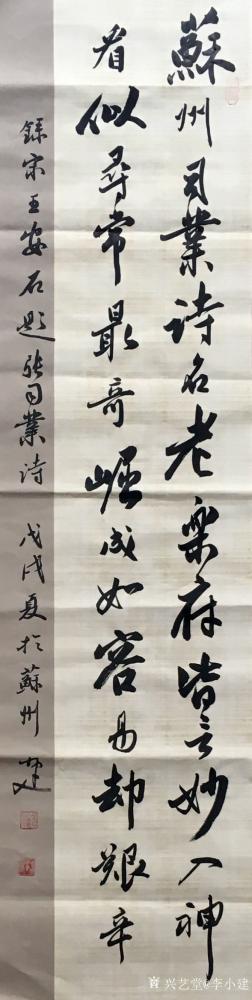 蘇州司業诗名老樂府皆言妙入神
看似尋常最奇崛成如容易却艱辛
録宋王安石題张司業诗 戊戌夏於蘇州 建
兴艺堂@李小建